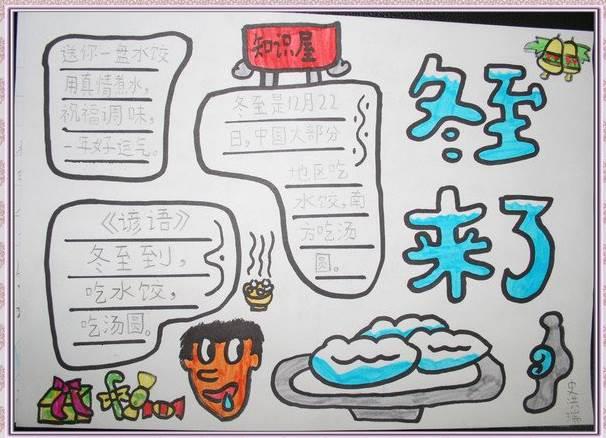 送你一盘水饺
用真情煮水,
祝福调味,
一年好运气。
知识屋
冬至是12月22
日,中国大部分
地区吃
水饺,南
方吃汤
圆。
冬至
来了
《谚语》
冬至到,
吃水饺,
吃汤圆。